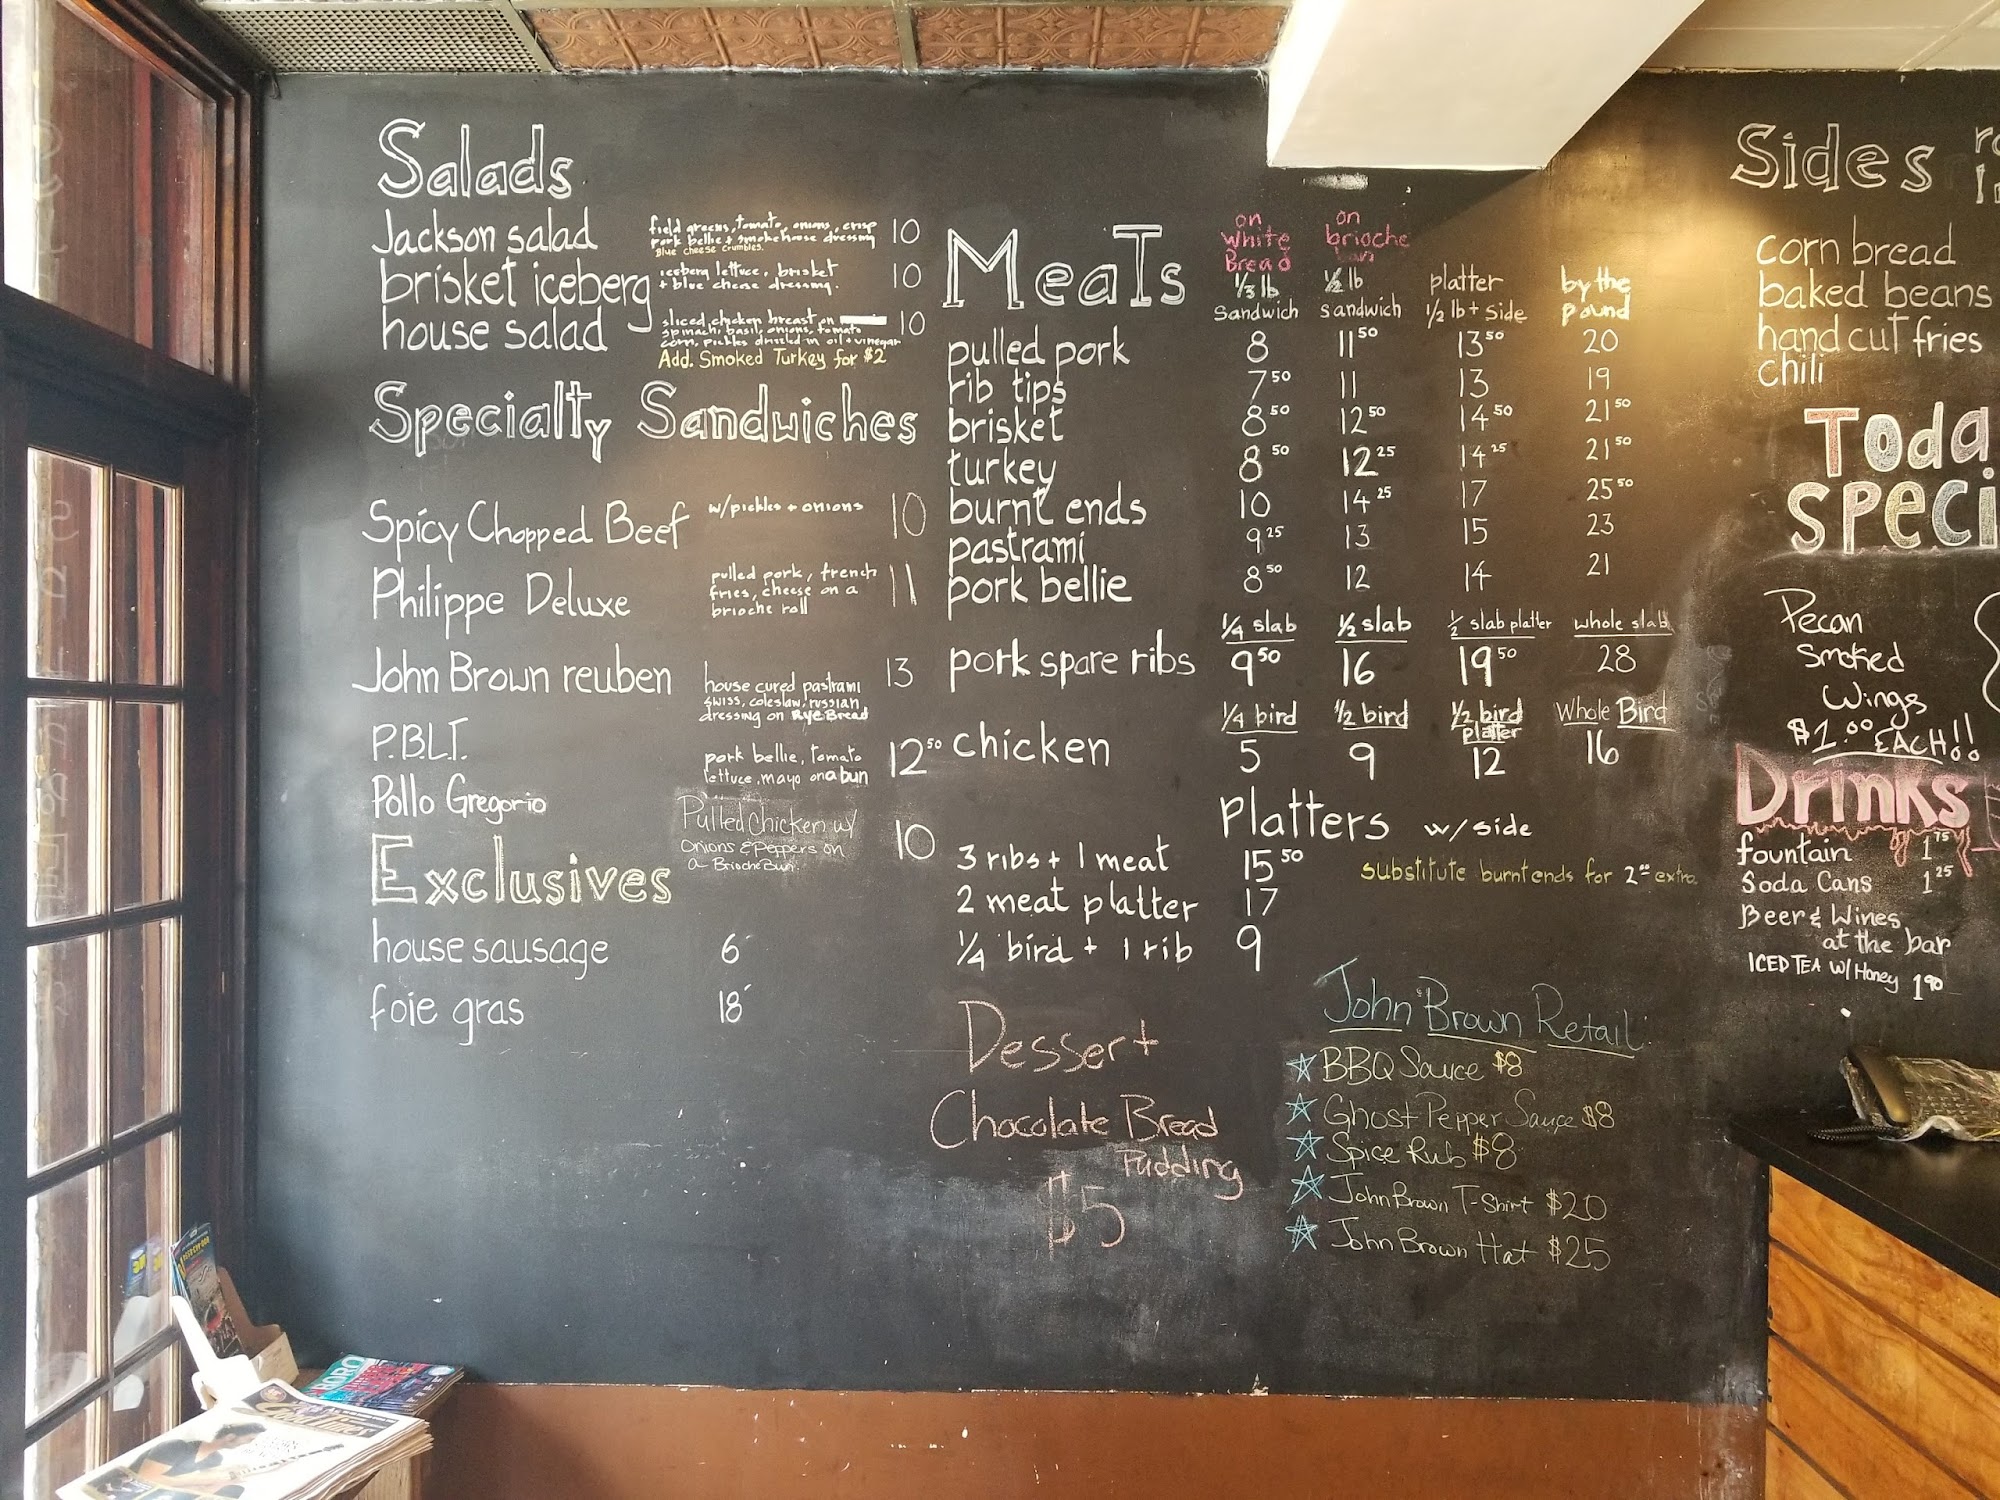 Salads
Jackson salad field greens, tomato, onions, crisp 10
pork bellie + smokehouse dressing
Blue cheese crumbles.
brisket iceberg iceberg lettuce, brisket 10
+ blue cheese dressing.
house salad sliced chicken breast on 10
spinach, basil, onions, tomato
corn, pickles drizzled in oil + vinegar
Add. Smoked Turkey for $2
Specialty Sandwiches
Spicy Chopped Beef w/pickles + onions 10
Philippe Deluxe pulled pork, french 11
fries, cheese on a
brioche roll
John Brown reuben house cured pastrami 13
swiss, coleslaw, russian
dressing on Rye Bread
P.B.L.T. pork bellie, tomato 12 50
lettuce, mayo on a bun
Pollo Gregorio Pulled Chicken w/ 10
Onions & Peppers on
a Brioche Bun.
Exclusives
house sausage 6
foie gras 18
Meats
on White Bread
1/3 lb sandwich
on brioche bun
1/2 lb sandwich
platter
1/2 lb + side
by the pound
pulled pork 8 11 50 13 50 20
rib tips 7 50 11 13 19
brisket 8 50 12 50 14 50 21 50
turkey 8 50 12 25 14 25 21 50
burnt ends 10 14 25 17 25 50
pastrami 9 25 13 15 23
pork bellie 8 50 12 14 21
1/4 slab 1/2 slab 1/2 slab platter whole slab
pork spare ribs 9 50 16 19 50 28
1/4 bird 1/2 bird 1/2 bird platter Whole Bird
chicken 5 9 12 16
Platters w/ side
3 ribs + 1 meat 15 50
substitute burnt ends for 2 00 extra
2 meat platter 17
1/4 bird + 1 rib 9
Dessert
Chocolate Bread
Pudding
$5
John Brown Retail
BBQ Sauce $8
Ghost Pepper Sauce $8
Spice Rub $8
John Brown T-Shirt $20
John Brown Hat $25
Sides
corn bread
baked beans
hand cut fries
chili
Toda
speci
Pecan
Smoked
Wings
$1.00 EACH!!
Drinks
fountain 1 75
Soda Cans 1 25
Beer & Wines
at the bar
ICED TEA W/ Honey 1 90